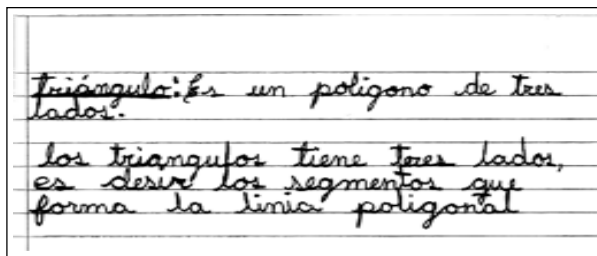 triángulo: Es un poligono de tres
lados.
los triángulos tiene teres lados,
es desir los segmentos que
forma la linia poligonal